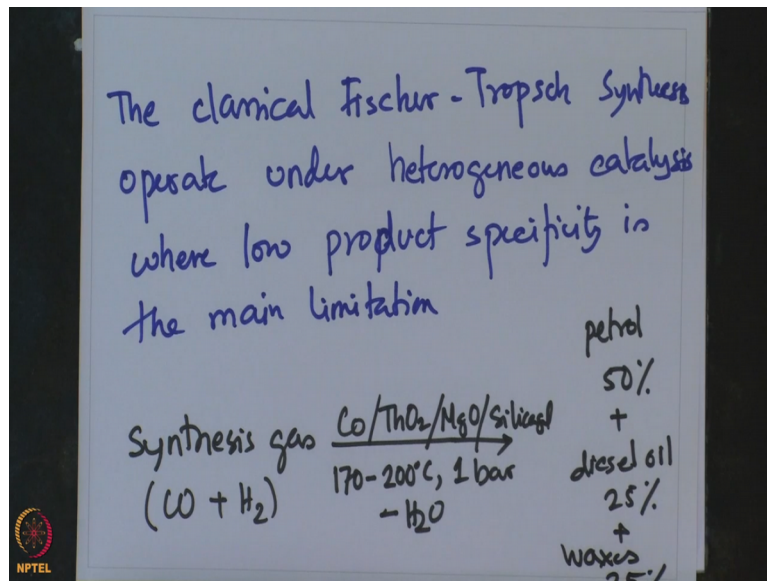 The classical Fischer-Tropsch Synthesis
operate under heterogeneous catalysis
where low product specificity is
the main limitation
Synthesis gas
(CO + H₂)
Co/ThO₂/MgO/Silicagel
170-200°C, 1 bar
- H₂O
petrol
50%
+
diesel oil
25%
+
waxes
25%
NPTEL